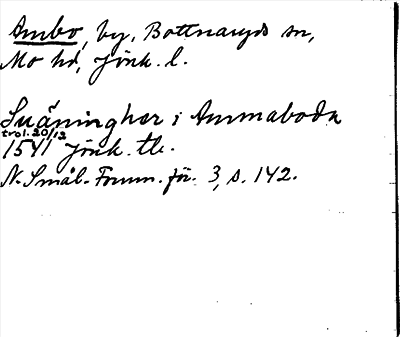 Ambo, by, Bottnaryds sn,
Mo hd, Jönk. l.
Suäningher i Ammaboda
trol. 20/12
1541 Jönk. tb.
N. Smål. Fornm. för. 3, s. 142.